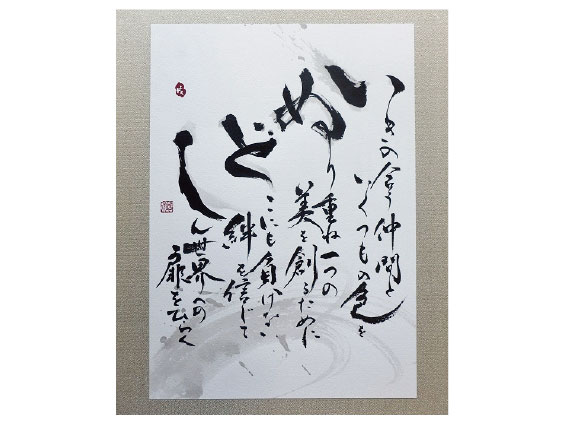 いきの合う仲間と
いくつもの色を
ぬり重ね一つの
美を創るために
どこにも負けない
絆を信じて
しん世界への
扉をひらく